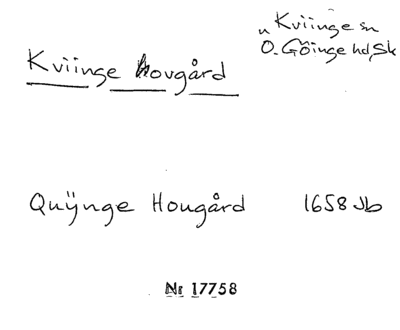 Kviinge hovgård
„ Kviinge sn
O. Göinge hd, Sk
Quÿnge Hougård 1658 Jb
Nr 17758